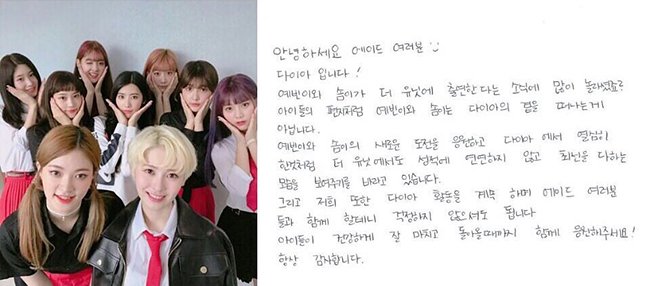 안녕하세요 에이드 여러분 :)
다이아 입니다!
예빈이와 솜이가 더 유닛에 출연한다는 소식에 많이 놀라셨죠?
아이들의 편지처럼 예빈이와 솜이는 다이아의 곁을 떠나는게
아닙니다.
예빈이와 솜이의 새로운 도전을 응원하고 다이아 에서 열심히
한것처럼 더 유닛 에서도 성적에 연연하지 않고 최선을 다하는
모습을 보여주길 바라고 있습니다.
그리고 저희 또한 다이아 활동을 계속 하며 에이드 여러분
들과 함께 할테니 걱정하지 않으셔도 됩니다
아이들이 건강하게 잘 마치고 돌아올때까지 함께 응원해주세요!
항상 감사합니다.